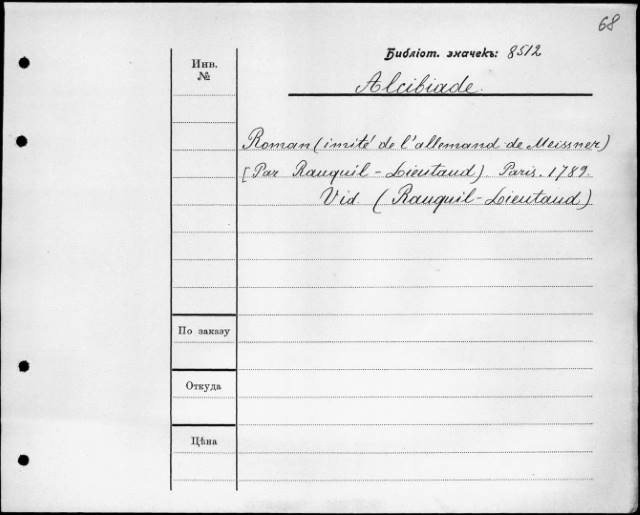 68
Библіот. значекъ: 8512
Инв.
№
Alcibiade.
Roman (imité de l'allemand de Meissner)
[Par Rauquil-Lieutaud). Paris. 1789.
Vid. (Rauquil-Lieutaud).
По заказу
Откуда
Цѣна